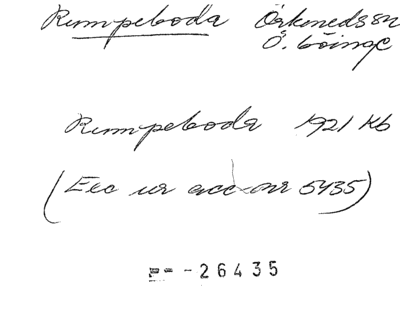 Rumpeboda Örkeneds sn
Ö. Göinge
Rumpeboda 1921 Kb
(Exc ur acc-nr 5435)
-26435